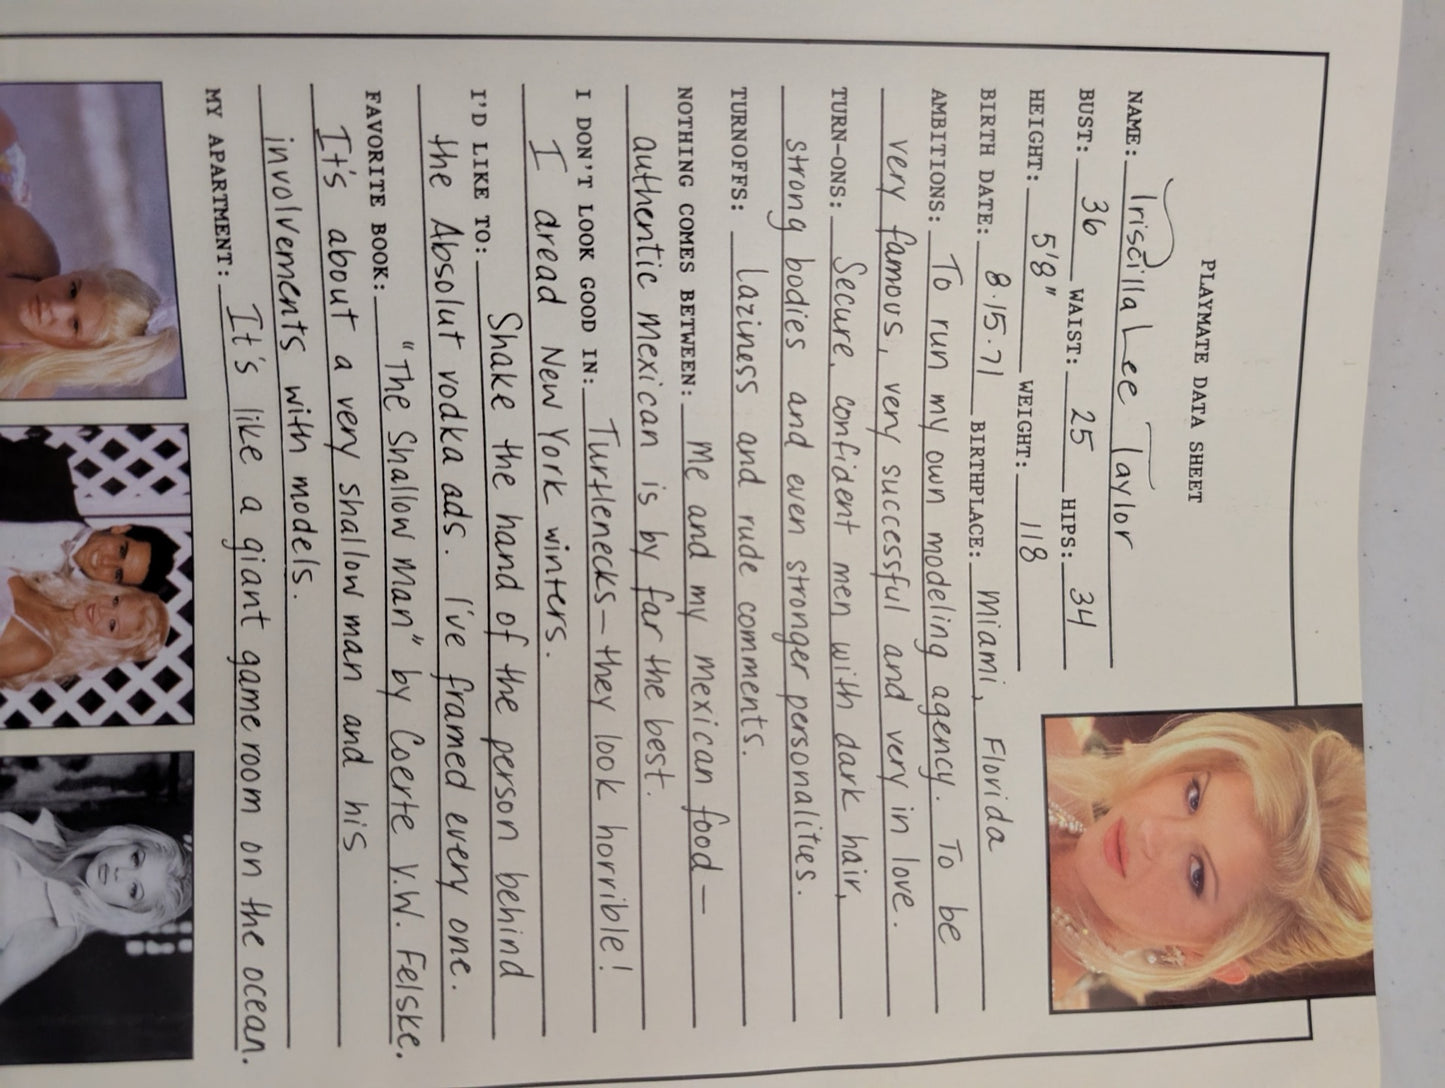 PLAYMATE DATA SHEET
NAME: Priscilla Lee Taylor
BUST: 36 WAIST: 25 HIPS: 34
HEIGHT: 5'8" WEIGHT: 118
BIRTH DATE: 8·15·71 BIRTHPLACE: Miami, Florida
AMBITIONS: To run my own modeling agency. To be
very famous, very successful and very in love.
TURN-ONS: Secure, confident men with dark hair,
strong bodies and even stronger personalities.
TURNOFFS: Laziness and rude comments.
NOTHING COMES BETWEEN: Me and my Mexican food—
authentic Mexican is by far the best.
I DON'T LOOK GOOD IN: Turtlenecks—they look horrible!
I dread New York winters.
I'D LIKE TO: Shake the hand of the person behind
the Absolut vodka ads. I've framed every one.
FAVORITE BOOK: "The Shallow Man" by Coerte V.W. Felske.
It's about a very shallow man and his
involvements with models.
MY APARTMENT: It's like a giant game room on the ocean.